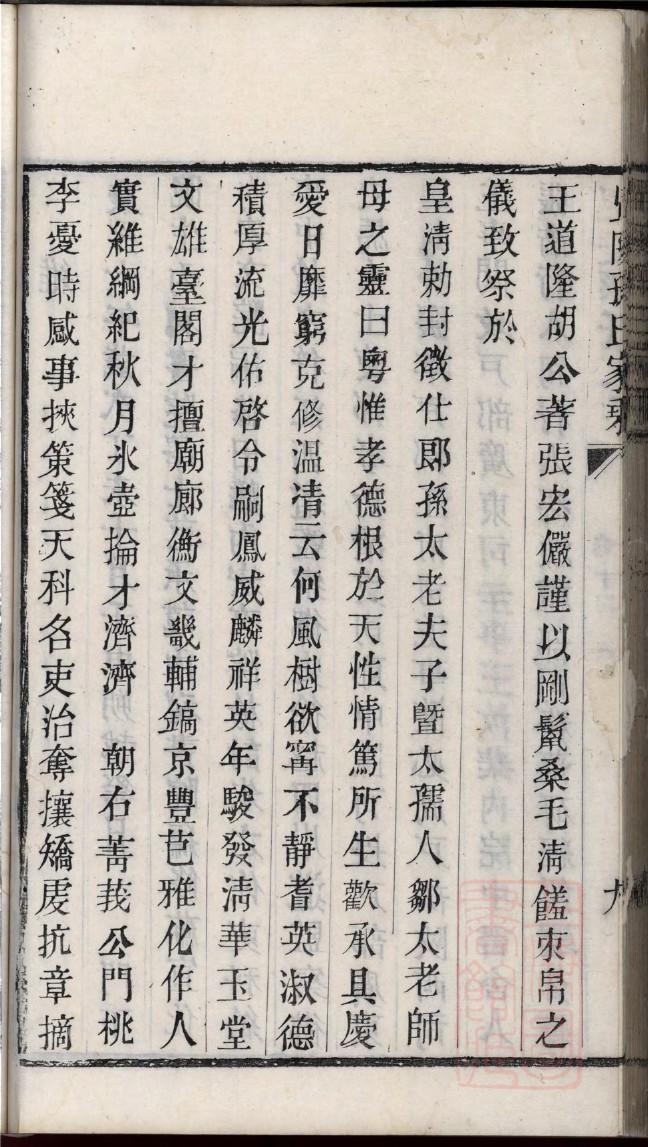 孫氏家乘
九
王道隆胡公著張宏儼謹以剛鬣桑毛清饈朿帛之
儀致祭於
皇清勅封徵仕郎孫太老夫子曁太孺人鄒太老師
母之靈曰粵惟孝德根於天性情篤所生歡承具慶
愛日靡窮克修温凊云何風樹欲寗不靜耆英淑德
積厚流光佑啓令嗣鳳威麟祥英年駿發清華玉堂
文雄臺閣才擅廟廊衡文畿輔鎬京豐芑雅化作人
實維綱紀秋月氷壺掄才濟濟 朝右菁莪公門桃
李憂時感事挾策箋天科名吏治奪攘矯虔抗章摘